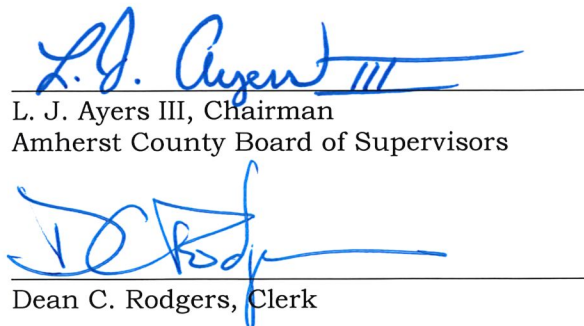 L. J. Ayers III
L. J. Ayers III, Chairman
Amherst County Board of Supervisors
D C Rodgers
Dean C. Rodgers, Clerk